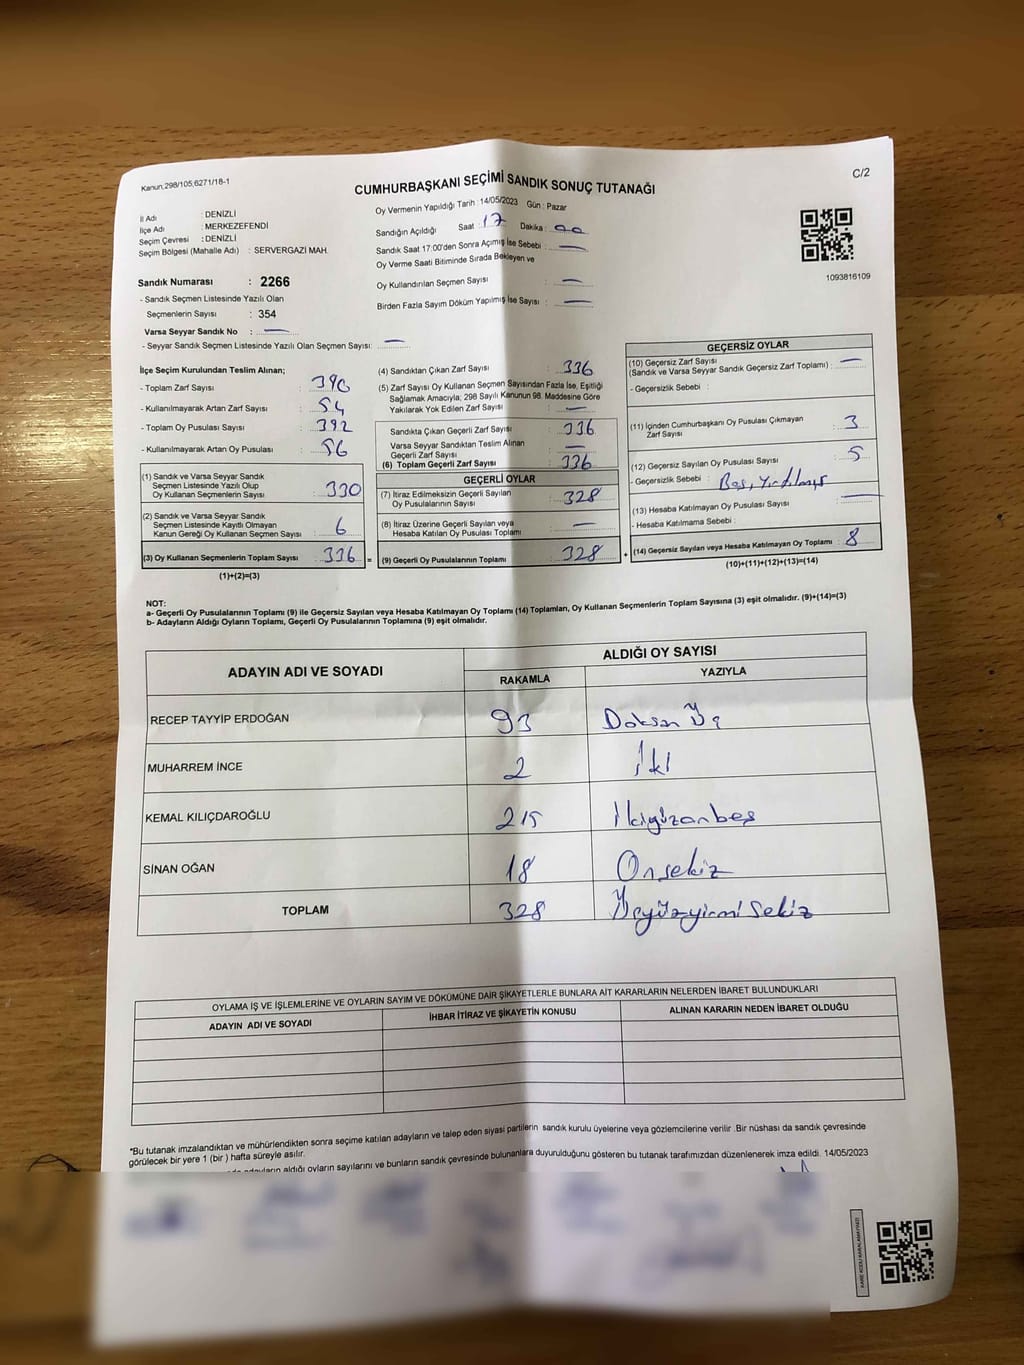 Kanun;298/105;6271/18-1
C/2
CUMHURBAŞKANI SEÇİMİ SANDIK SONUÇ TUTANAĞI
İl Adı : DENİZLİ
İlçe Adı : MERKEZEFENDİ
Seçim Çevresi : DENİZLİ
Seçim Bölgesi (Mahalle Adı) : SERVERGAZİ MAH.
Oy Vermenin Yapıldığı Tarih :14/05/2023 Gün : Pazar
Sandığın Açıldığı Saat : 17 Dakika : 00
Sandık Saat 17:00'den Sonra Açımış İse Sebebi : —
Oy Verme Saati Bitiminde Sırada Bekleyen ve
Oy Kullandırılan Seçmen Sayısı : —
Birden Fazla Sayım Döküm Yapılmış İse Sayısı : —
1093816109
Sandık Numarası : 2266
- Sandık Seçmen Listesinde Yazılı Olan
Seçmenlerin Sayısı : 354
Varsa Seyyar Sandık No : —
- Seyyar Sandık Seçmen Listesinde Yazılı Olan Seçmen Sayısı: —
İlçe Seçim Kurulundan Teslim Alınan;
- Toplam Zarf Sayısı : 390
- Kullanılmayarak Artan Zarf Sayısı : 54
- Toplam Oy Pusulası Sayısı : 392
- Kullanılmayarak Artan Oy Pusulası : 56
(1) Sandık ve Varsa Seyyar Sandık
Seçmen Listesinde Yazılı Olup
Oy Kullanan Seçmenlerin Sayısı : 330
(2) Sandık ve Varsa Seyyar Sandık
Seçmen Listesinde Kayıtlı Olmayan
Kanun Gereği Oy Kullanan Seçmen Sayısı : 6
(3) Oy Kullanan Seçmenlerin Toplam Sayısı : 336 =
(1)+(2)=(3)
(4) Sandıktan Çıkan Zarf Sayısı : 336
(5) Zarf Sayısı Oy Kullanan Seçmen Sayısından Fazla İse, Eşitliği
Sağlamak Amacıyla; 298 Sayılı Kanunun 98. Maddesine Göre
Yakılarak Yok Edilen Zarf Sayısı : —
Sandıkta Çıkan Geçerli Zarf Sayısı : 336
Varsa Seyyar Sandıktan Teslim Alınan
Geçerli Zarf Sayısı : —
(6) Toplam Geçerli Zarf Sayısı : 336
GEÇERLİ OYLAR
(7) İtiraz Edilmeksizin Geçerli Sayılan
Oy Pusulalarının Sayısı : 328
(8) İtiraz Üzerine Geçerli Sayılan veya
Hesaba Katılan Oy Pusulası Toplamı : —
(9) Geçerli Oy Pusulalarının Toplamı : 328 +
GEÇERSİZ OYLAR
(10) Geçersiz Zarf Sayısı
(Sandık ve Varsa Seyyar Sandık Geçersiz Zarf Toplamı) : —
- Geçersizlik Sebebi :
(11) İçinden Cumhurbaşkanı Oy Pusulası Çıkmayan
Zarf Sayısı : 3
(12) Geçersiz Sayılan Oy Pusulası Sayısı : 5
- Geçersizlik Sebebi : Boş, Yırtılmış
(13) Hesaba Katılmayan Oy Pusulası Sayısı : —
- Hesaba Katılmama Sebebi :
(14) Geçersiz Sayılan veya Hesaba Katılmayan Oy Toplamı : 8
(10)+(11)+(12)+(13)=(14)
NOT:
a- Geçerli Oy Pusulalarının Toplamı (9) ile Geçersiz Sayılan veya Hesaba Katılmayan Oy Toplamı (14) Toplamları, Oy Kullanan Seçmenlerin Toplam Sayısına (3) eşit olmalıdır. (9)+(14)=(3)
b- Adayların Aldığı Oyların Toplamı, Geçerli Oy Pusulalarının Toplamına (9) eşit olmalıdır.
ADAYIN ADI VE SOYADI
ALDIĞI OY SAYISI
RAKAMLA YAZIYLA
RECEP TAYYİP ERDOĞAN 93 Doksan Üç
MUHARREM İNCE 2 İki
KEMAL KILIÇDAROĞLU 215 İkiyüzonbeş
SİNAN OĞAN 18 Onsekiz
TOPLAM 328 Üçyüzyirmi Sekiz
OYLAMA İŞ VE İŞLEMLERİNE VE OYLARIN SAYIM VE DÖKÜMÜNE DAİR ŞİKAYETLERLE BUNLARA AİT KARARLARIN NELERDEN İBARET BULUNDUKLARI
ADAYIN ADI VE SOYADI İHBAR İTİRAZ VE ŞİKAYETİN KONUSU ALINAN KARARIN NEDEN İBARET OLDUĞU
*Bu tutanak imzalandıktan ve mühürlendikten sonra seçime katılan adayların ve talep eden siyasi partilerin sandık kurulu üyelerine veya gözlemcilerine verilir .Bir nüshası da sandık çevresinde
görülecek bir yere 1 (bir ) hafta süreyle asılır.
adayların aldığı oyların sayılarını ve bunların sandık çevresinde bulunanlara duyurulduğunu gösteren bu tutanak tarafımızdan düzenlenerek imza edildi. 14/05/2023